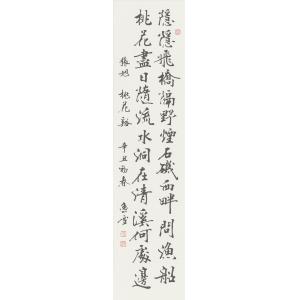 隱隱飛橋隔野煙石磯西畔問漁船
桃花盡日隨流水洞在清溪何處邊
張旭 桃花谿 辛丑初春